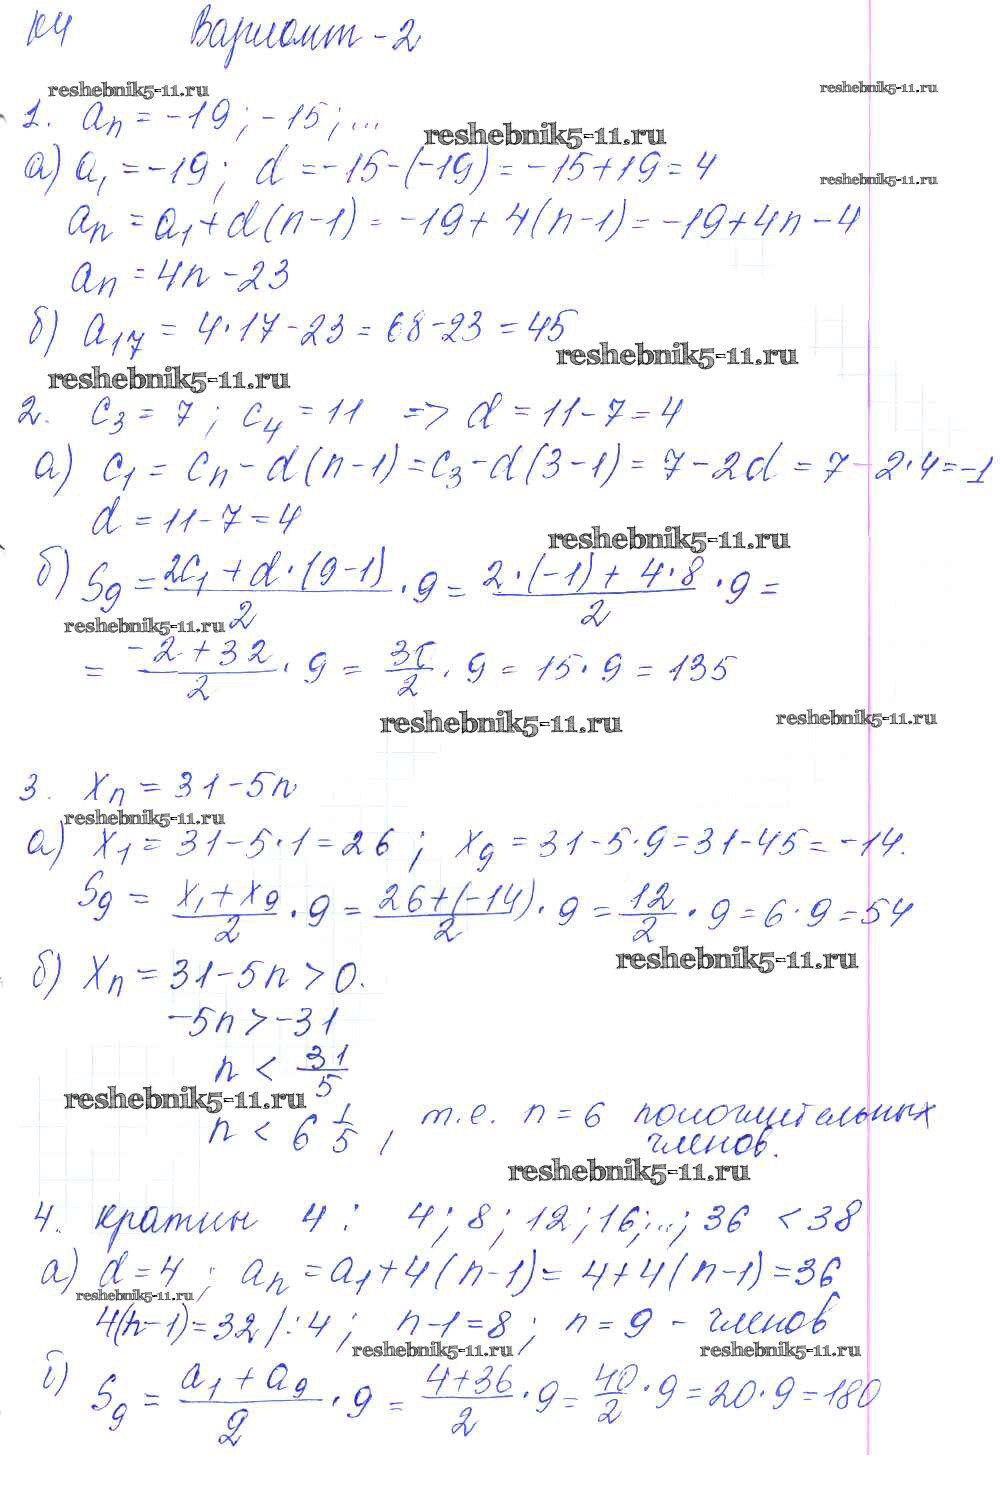 К4 Вариант - 2
reshebnik5-11.ru reshebnik5-11.ru
1. an = -19; -15; ...
reshebnik5-11.ru
а) a₁ = -19; d = -15-(-19) = -15+19 = 4
reshebnik5-11.ru
an = a₁ + d(n-1) = -19 + 4(n-1) = -19+4n-4
an = 4n - 23
б) a₁₇ = 4·17 - 23 = 68 - 23 = 45
reshebnik5-11.ru
reshebnik5-11.ru
2. c₃ = 7; c₄ = 11 => d = 11 - 7 = 4
а) c₁ = cn - d(n-1) = c₃ - d(3-1) = 7 - 2d = 7 - 2·4 = -1
d = 11 - 7 = 4
reshebnik5-11.ru
б) S₉ = (2c₁ + d·(9-1))/2 · 9 = (2·(-1) + 4·8)/2 · 9 =
reshebnik5-11.ru
= (-2+32)/2 · 9 = 30/2 · 9 = 15·9 = 135
reshebnik5-11.ru reshebnik5-11.ru
3. xn = 31 - 5n
reshebnik5-11.ru
а) x₁ = 31 - 5·1 = 26; x₉ = 31 - 5·9 = 31 - 45 = -14.
S₉ = (x₁ + x₉)/2 · 9 = (26+(-14))/2 · 9 = 12/2 · 9 = 6·9 = 54
reshebnik5-11.ru
б) xn = 31 - 5n > 0.
-5n > -31
n < 31/5
reshebnik5-11.ru
n < 6 1/5, т.е. n = 6 положительных
членов.
reshebnik5-11.ru
4. кратны 4: 4; 8; 12; 16; ...; 36 < 38
а) d = 4; an = a₁ + 4(n-1) = 4 + 4(n-1) = 36
reshebnik5-11.ru
4(n-1) = 32 / :4; n-1 = 8; n = 9 - членов
reshebnik5-11.ru reshebnik5-11.ru
б) S₉ = (a₁ + a₉)/2 · 9 = (4+36)/2 · 9 = 40/2 · 9 = 20·9 = 180